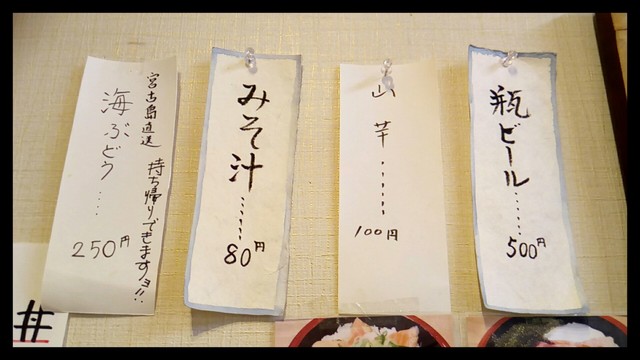 宮古島直送 持ち帰りできますヨ!!
海ぶどう....
250円
みそ汁......
80円
山芋......
100円
瓶ビール.....
500円
丼